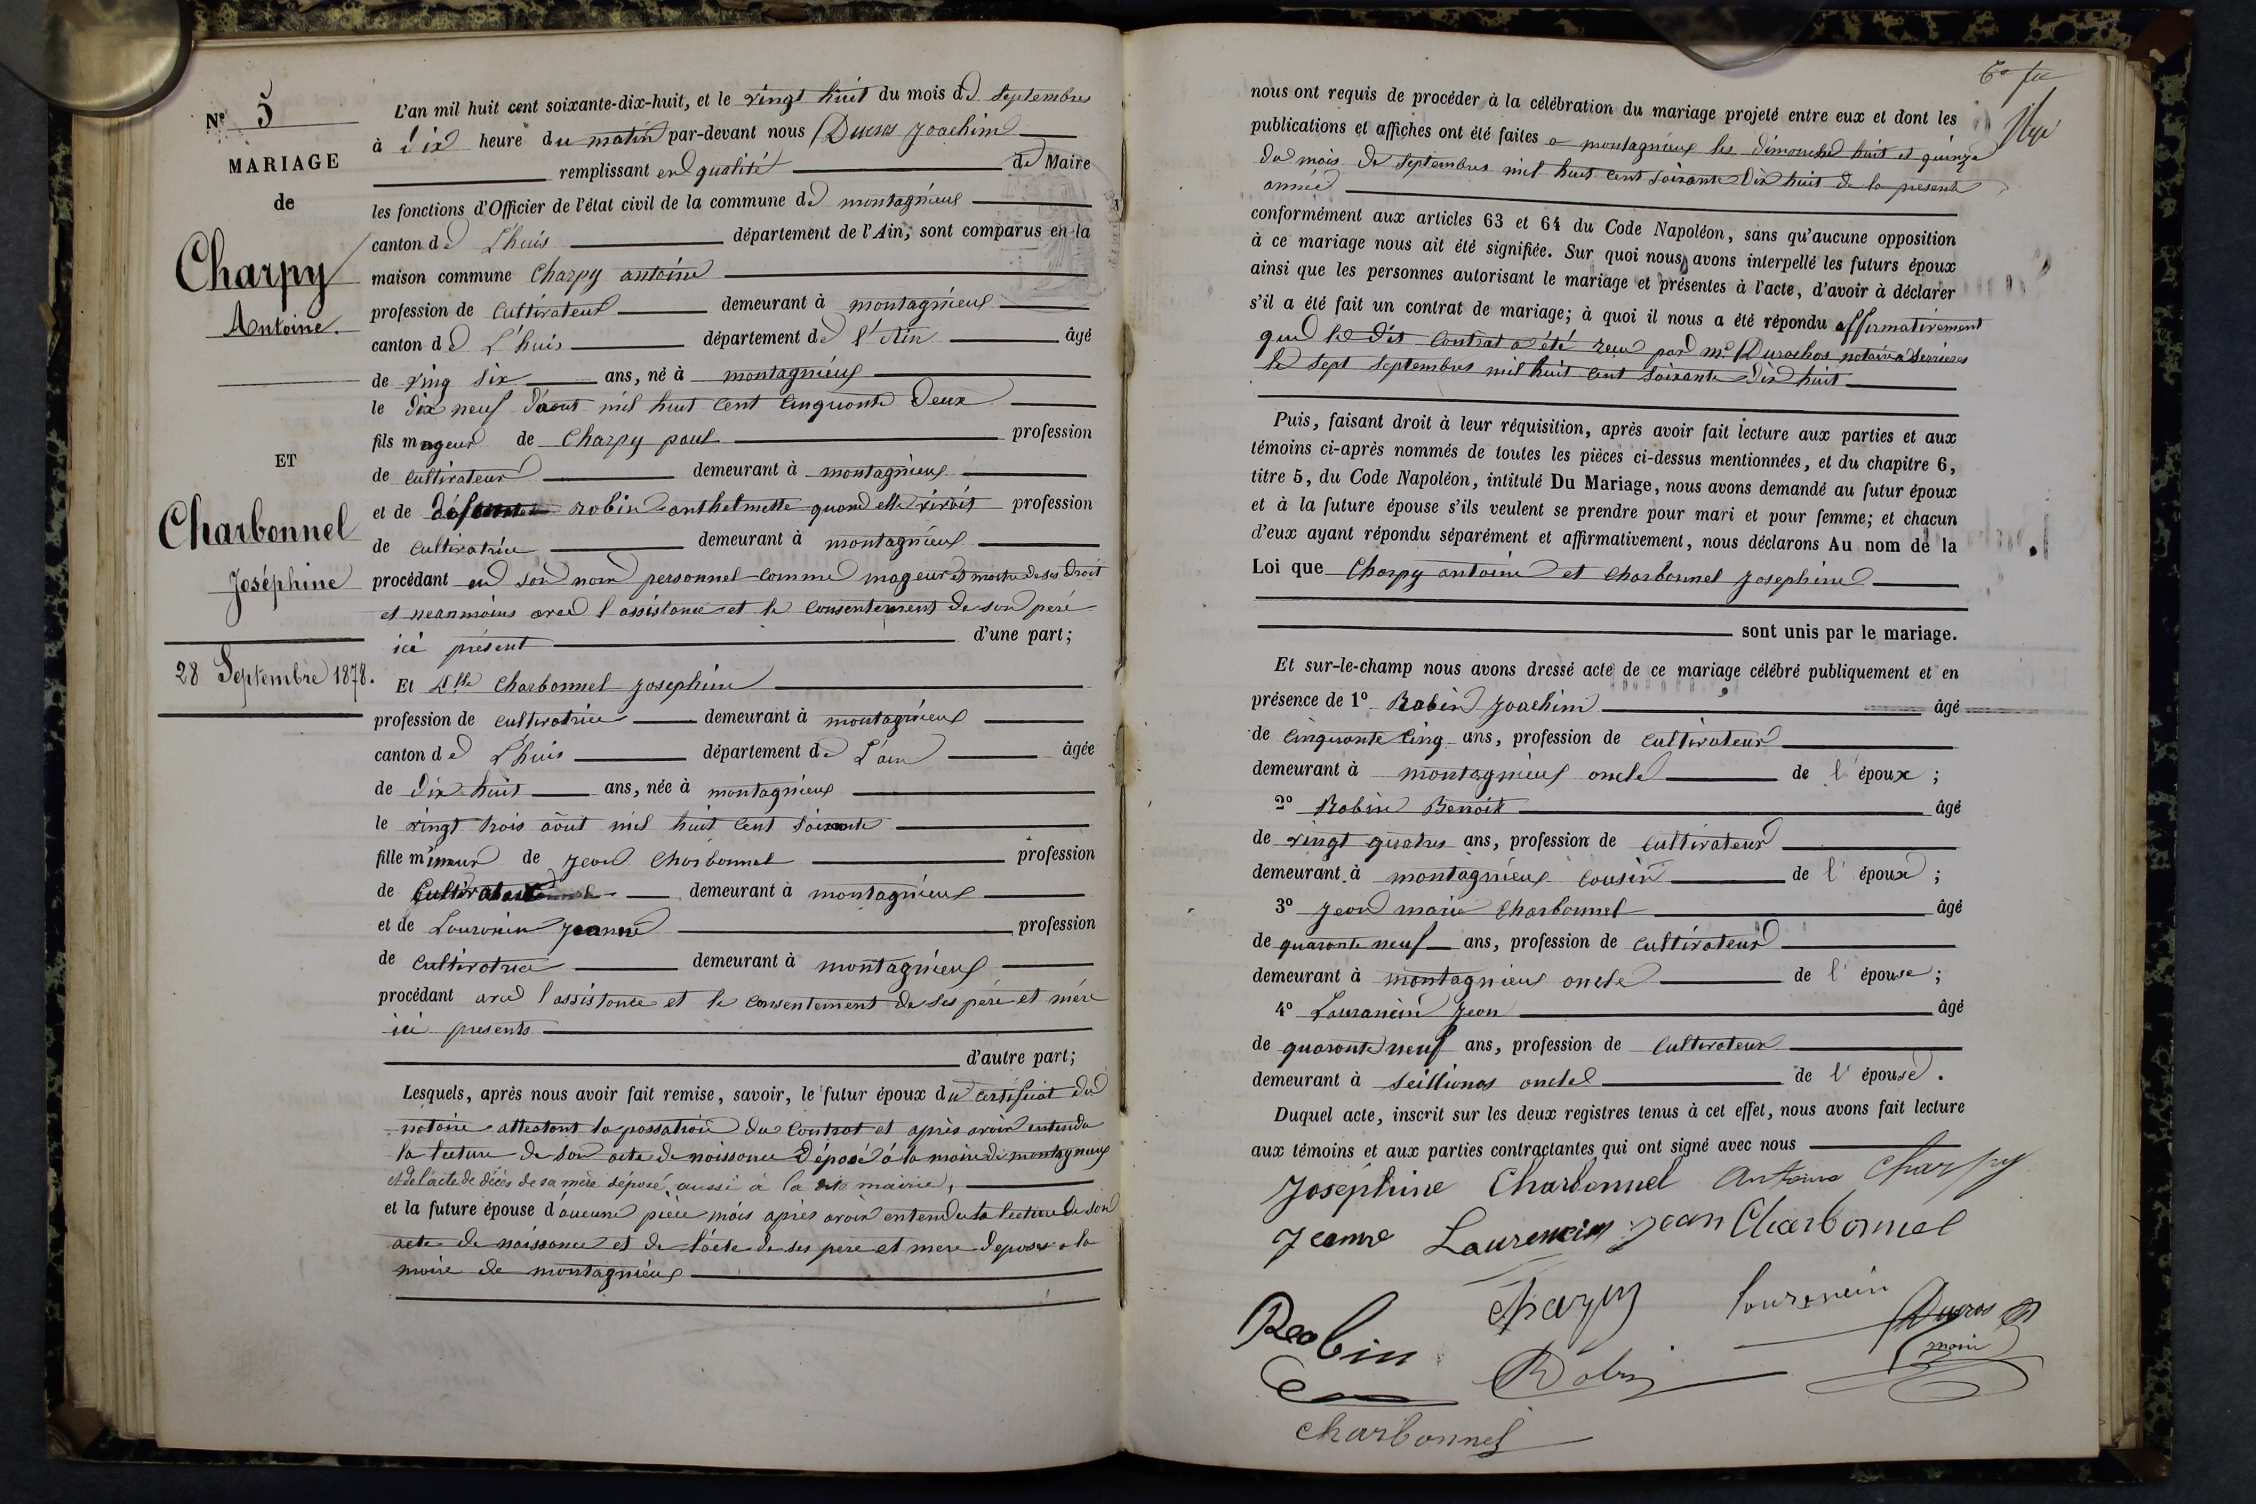 N° 5
MARIAGE
de
Charpy
Antoine.
ET
Charbonnel
Joséphine
28 Septembre 1878.
L'an mil huit cent soixante-dix-huit, et le vingt huit du mois de septembres
à dix heure du matin par-devant nous Ducros Joachim
remplissant en qualité de Maire
les fonctions d'Officier de l'état civil de la commune de montagnieux
canton de L'huis département de l'Ain, sont comparus en la
maison commune Charpy antoine
profession de cultivateur demeurant à montagnieux
canton de L'huis département de l'Ain âgé
de ving six ans, né à montagnieux
le dix neuf d'aout mil huit cent cinquante deux
fils mageur de Charpy paul profession
de cultivateur demeurant à montagnieux
et de défunte robin anthelmette quand elle vivais profession
de cultivatrice demeurant à montagnieux
procédant en son nom personnel comme mageur et maitre de ses droit
et neanmoins avec l'assistance et le consentement de son peré
ici présent d'une part;
Et Dlle Charbonnel Josephine
profession de cultivatrice demeurant à montagnieux
canton de L'huis département de L'ain âgée
de dix huit ans, née à montagnieux
le vingt trois août mil huit cent soixante
fille mineur de Jean Charbonnel profession
de Cultivateur demeurant à montagnieux
et de Louronin Jeanne profession
de cultivatrice demeurant à montagnieux
procédant avec l'assistance et le consentement de ses pére et mére
ici presents
d'autre part;
Lesquels, après nous avoir fait remise, savoir, le futur époux du certificat du
notaire attestant la passation du contrat et après avoir entendu
la lecture de son acte de naissance déposé à la mairie de montagnieux
et de l'acte de décès de sa mère déposé aussi à la dite mairie,
et la future épouse d'aucune pièce mais après avoir entendu la lecture de son
acte de naissance et de l'acte de ses pere et mere deposer a la
moire de montagnieux
6e fe
nous ont requis de procéder à la célébration du mariage projeté entre eux et dont les
publications et affiches ont été faites a montagnieux les dimanche huit et quinze
du mois de septembres mil huit cent soixante dix huit de la presente
année
conformément aux articles 63 et 64 du Code Napoléon, sans qu'aucune opposition
à ce mariage nous ait été signifiée. Sur quoi nous avons interpellé les futurs époux
ainsi que les personnes autorisant le mariage et présentes à l'acte, d'avoir à déclarer
s'il a été fait un contrat de mariage; à quoi il nous a été répondu affirmativement
que le dit contrat a été reçu par me Durochas notaire a Serrieres
le sept septembres mil huit cent soixante dix huit
Puis, faisant droit à leur réquisition, après avoir fait lecture aux parties et aux
témoins ci-après nommés de toutes les pièces ci-dessus mentionnées, et du chapitre 6,
titre 5, du Code Napoléon, intitulé Du Mariage, nous avons demandé au futur époux
et à la future épouse s'ils veulent se prendre pour mari et pour femme; et chacun
d'eux ayant répondu séparément et affirmativement, nous déclarons Au nom de la
Loi que Charpy antoine et Charbonnel Josephine
sont unis par le mariage.
Et sur-le-champ nous avons dressé acte de ce mariage célébré publiquement et en
présence de 1° Robin Joachim âgé
de cinquante cinq ans, profession de cultivateur
demeurant à montagnieux oncle de l'époux;
2° Robin Benoit âgé
de vingt quatres ans, profession de cultivateur
demeurant à montagnieux cousin de l'époux;
3° Jean marie Charbonnel âgé
de quaronte neuf ans, profession de cultivateur
demeurant à montagnieux oncle de l'épouse;
4° Lauranein Jean âgé
de quaronte neuf ans, profession de cultivateur
demeurant à Seillionas oncle de l'épouse.
Duquel acte, inscrit sur les deux registres tenus à cet effet, nous avons fait lecture
aux témoins et aux parties contractantes qui ont signé avec nous
Joséphine Charbonnel Antoine Charpy
Jeanne Laurencin Jean Charbonnel
Charpy Lourencin
Robin Robin Ducros
maire
Charbonnel